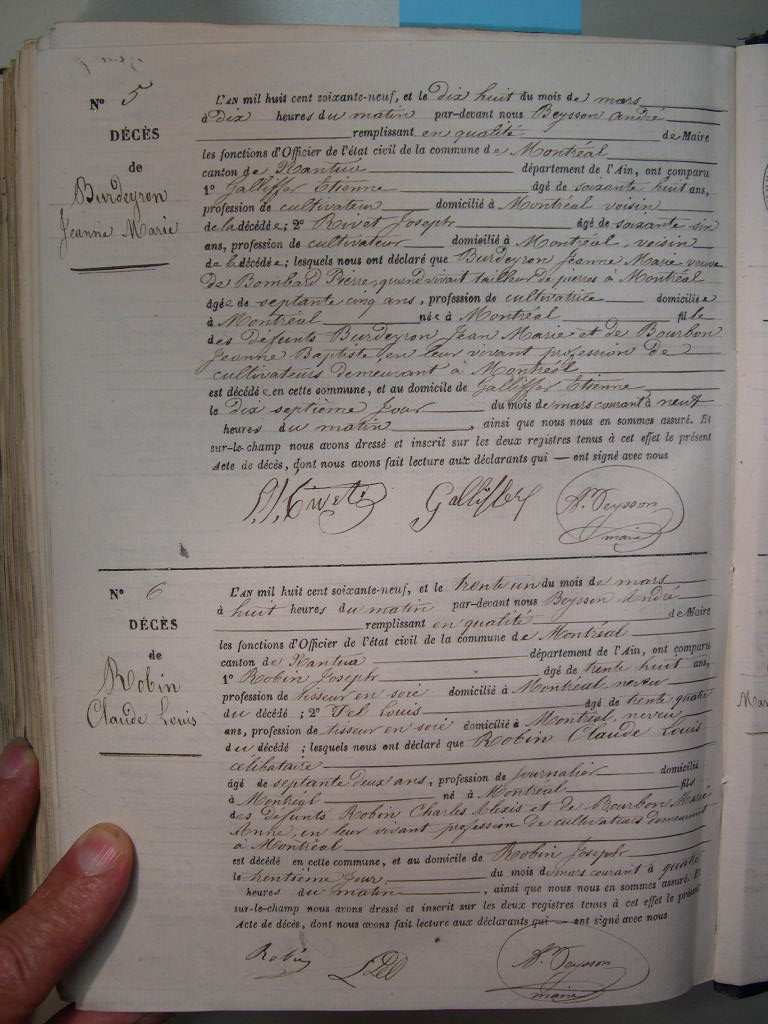 Nº 5
DÉCÈS
de
Burdeyron
Jeanne Marie
L'AN mil huit cent soixante-neuf, et le dix huit du mois de mars
à dix heures du matin par-devant nous Beysson André
remplissant en qualité de Maire
les fonctions d'Officier de l'état civil de la commune de Montréal
canton de Nantua département de l'Ain, ont comparu
1º Galliffet Etienne âgé de soixante huit ans,
profession de cultivateur domicilié à Montréal voisin
de la décédée; 2º Rivet Joseph âgé de soixante six
ans, profession de cultivateur domicilié à Montréal, voisin
de la décédée; lesquels nous ont déclaré que Burdeyron Jeanne Marie veuve
de Bombard Pierre, quand vivait tailleur de pierres à Montréal
âgée de septante cinq ans, profession de cultivatrice domiciliée
à Montréal née à Montréal fille
des défunts Burdeyron Jean Marie et de Bourbon
Jeanne Baptiste, en leur vivant profession de
cultivateurs demeurant à Montréal
est décédée en cette commune, et au domicile de Galliffet Etienne
le dix septième jour du mois de mars courant à neuf
heures du matin, ainsi que nous nous en sommes assuré. Et
sur-le-champ nous avons dressé et inscrit sur les deux registres tenus à cet effet le présent
Acte de décès, dont nous avons fait lecture aux déclarants qui — ont signé avec nous
Galliffet
Beysson
maire
Nº 6
DÉCÈS
de
Robin
Claude Louis
L'AN mil huit cent soixante-neuf, et le trente un du mois de mars
à huit heures du matin par-devant nous Beysson André
remplissant en qualité de Maire
les fonctions d'Officier de l'état civil de la commune de Montréal
canton de Nantua département de l'Ain, ont comparu
1º Robin Joseph âgé de trente huit ans,
profession de tisseur en soie domicilié à Montréal neveu
du décédé; 2º Louis âgé de trente quatre
ans, profession de tisseur en soie domicilié à Montréal, neveu
du décédé; lesquels nous ont déclaré que Robin Claude Louis
célibataire
âgé de septante deux ans, profession de journalier domicilié
à Montréal né à Montréal fils
des défunts Robin Charles Alexis et de Bourbon Marie
Anne, en leur vivant profession de cultivateurs demeurant
à Montréal
est décédé en cette commune, et au domicile de Robin Joseph
le trentième jour du mois de mars courant à quatre
heures du matin, ainsi que nous nous en sommes assuré. Et
sur-le-champ nous avons dressé et inscrit sur les deux registres tenus à cet effet le présent
Acte de décès, dont nous avons fait lecture aux déclarants qui — ont signé avec nous
Robin
Beysson
maire